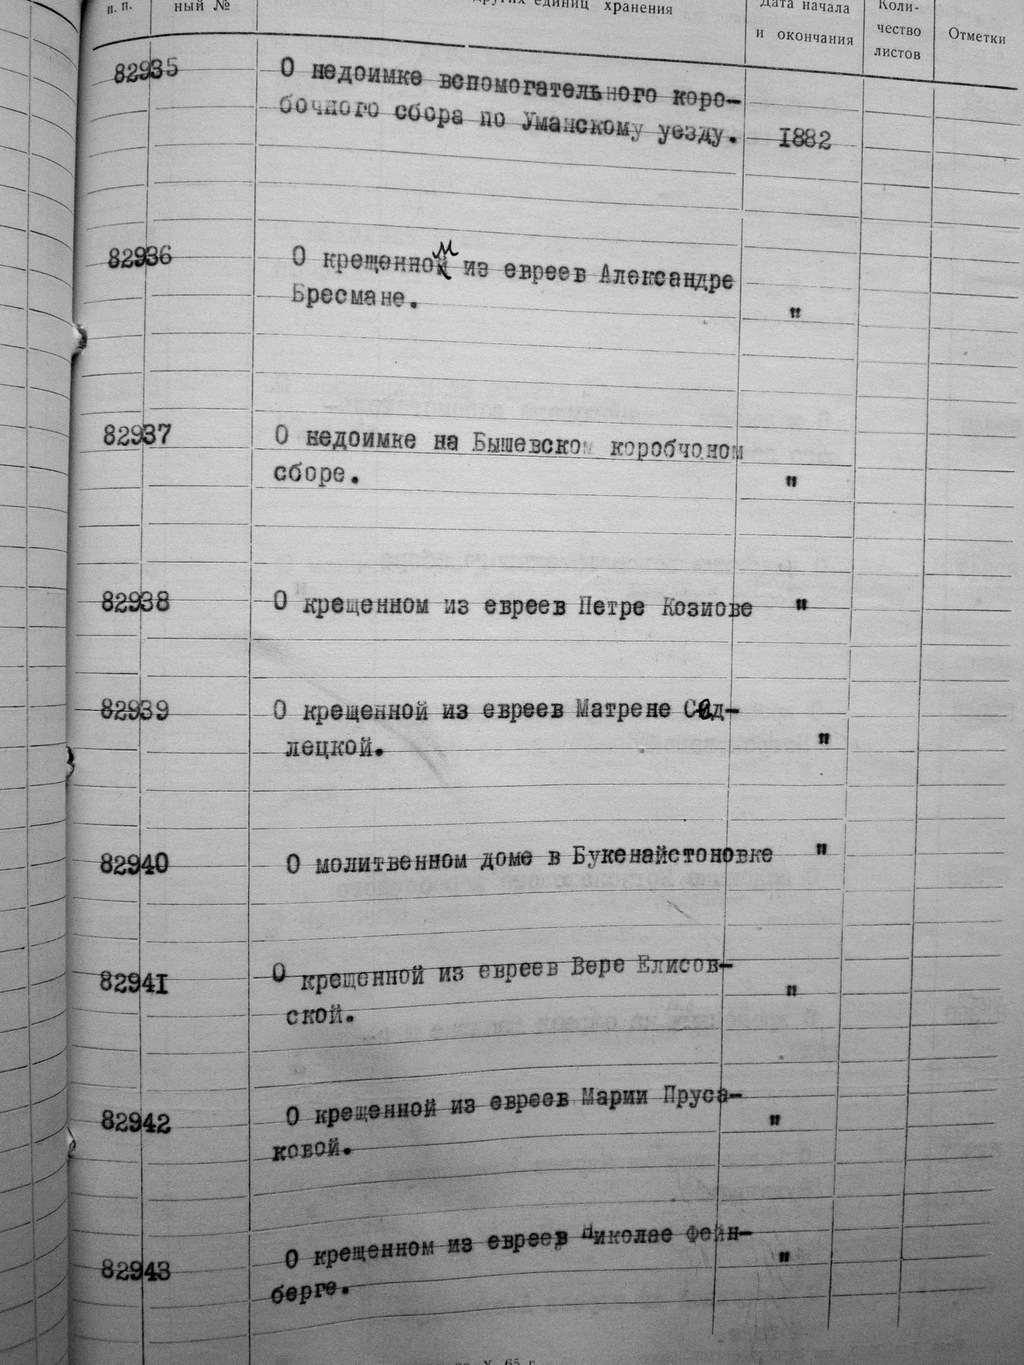 п. п.
ный №
других единиц хранения
Дата начала
и окончания
Коли-
чество
листов
Отметки
82935
О недоимке вспомогательного коро-
бочного сбора по Уманскому уезду.
1882
82936
О крещенном из евреев Александре
Бресмане.
"
82937
О недоимке на Бышевском коробчоном
сборе.
"
82938
О крещенном из евреев Петре Козиове
"
82939
О крещенной из евреев Матрене Сед-
лецкой.
"
82940
О молитвенном доме в Букенайстоновке
"
82941
О крещенной из евреев Вере Елисов-
ской.
"
82942
О крещенной из евреев Марии Пруса-
ковой.
"
82943
О крещенном из евреев Николае Фейн-
берге.
"